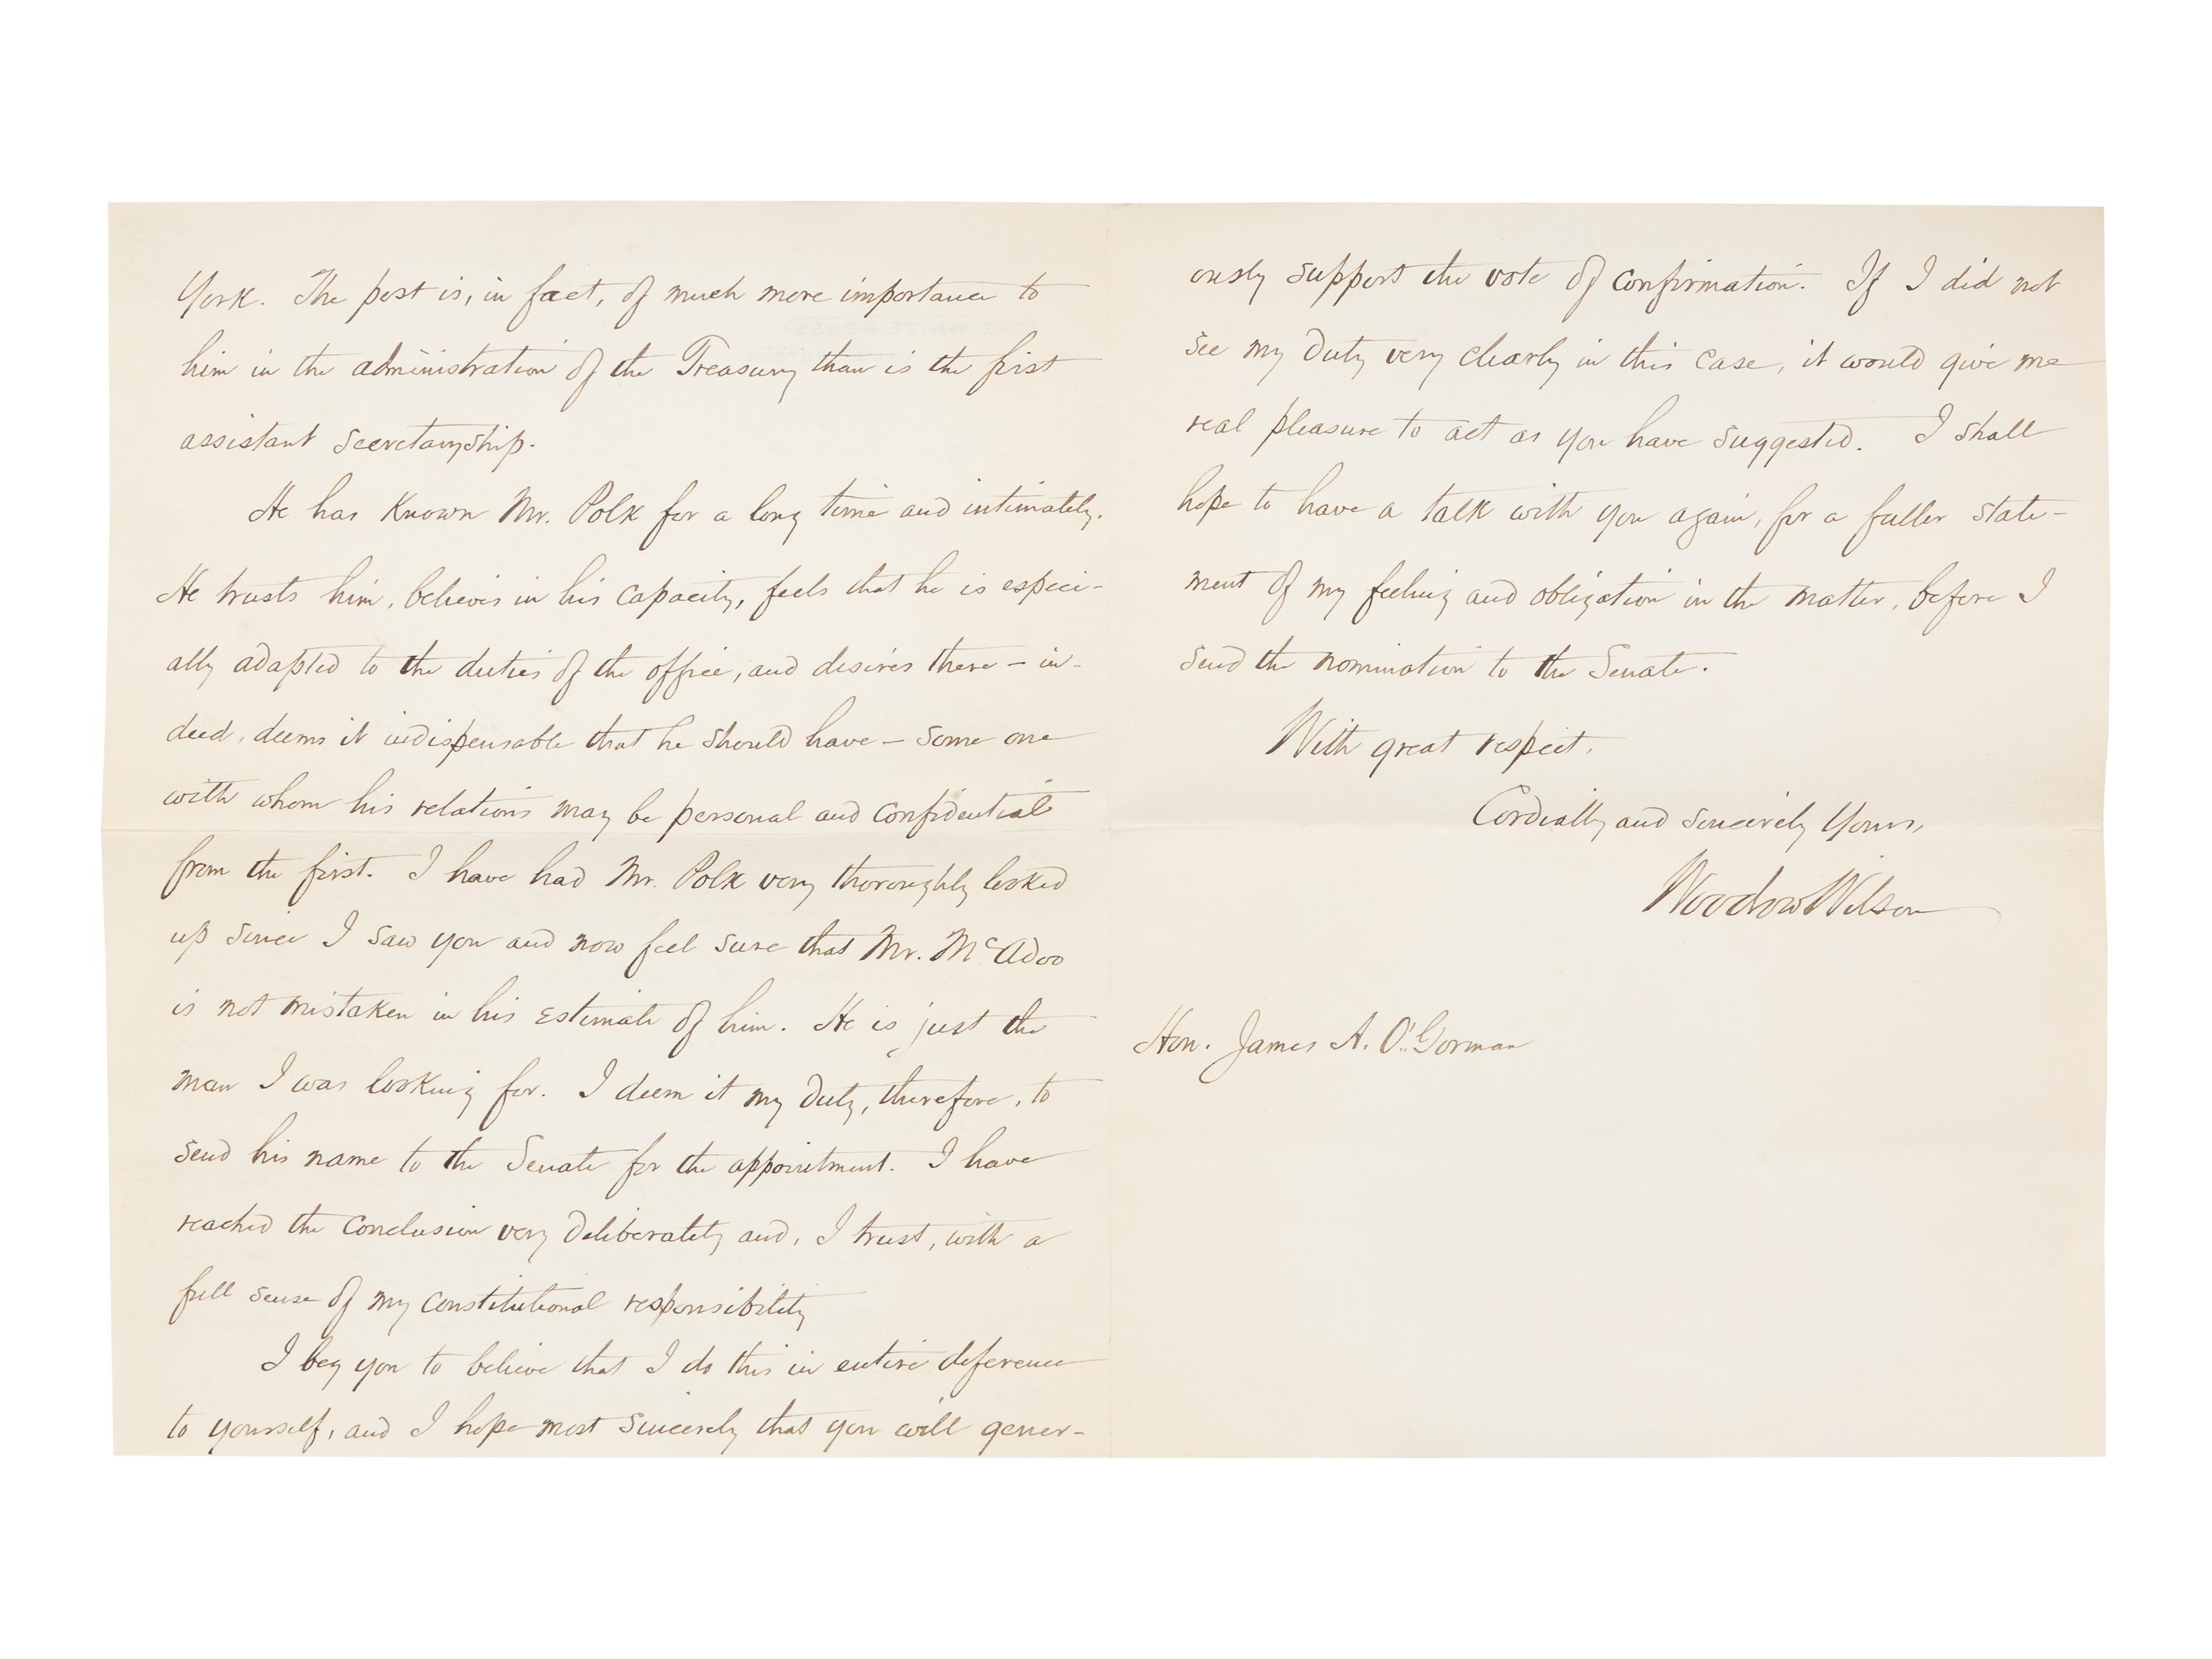 York. The post is, in fact, of much more importance to
him in the administration of the Treasury than is the first
assistant secretaryship.
He has known Mr. Polk for a long time and intimately.
He trusts him, believes in his capacity, feels that he is especi-
ally adapted to the duties of the office, and desires there – in-
deed, deems it indispensable that he should have – some one
with whom his relations may be personal and confidential
from the first. I have had Mr. Polk very thoroughly looked
up since I saw you and now feel sure that Mr. McAdoo
is not mistaken in his estimate of him. He is just the
man I was looking for. I deem it my duty, therefore, to
send his name to the Senate for the appointment. I have
reached the conclusion very deliberately and, I trust, with a
full sense of my constitutional responsibility
I beg you to believe that I do this in entire deference
to yourself, and I hope most sincerely that you will gener-
ously support the vote of confirmation. If I did not
see my duty very clearly in this case, it would give me
real pleasure to act as you have suggested. I shall
hope to have a talk with you again, for a fuller state-
ment of my feeling and obligation in the matter, before I
send the nomination to the Senate.
With great respect,
Cordially and sincerely Yours,
Woodrow Wilson
Hon. James A. O'Gorman